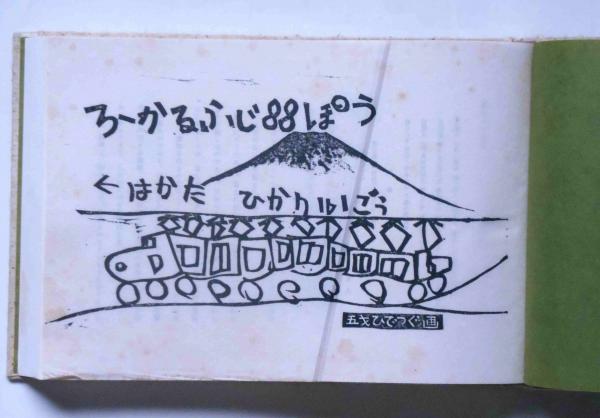 ろーかるふじ88ぽう
← はかた ひかり111ごう
五才ひでつぐ画